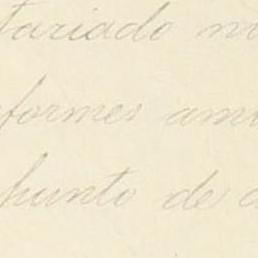 tariado
formes am
hunto de